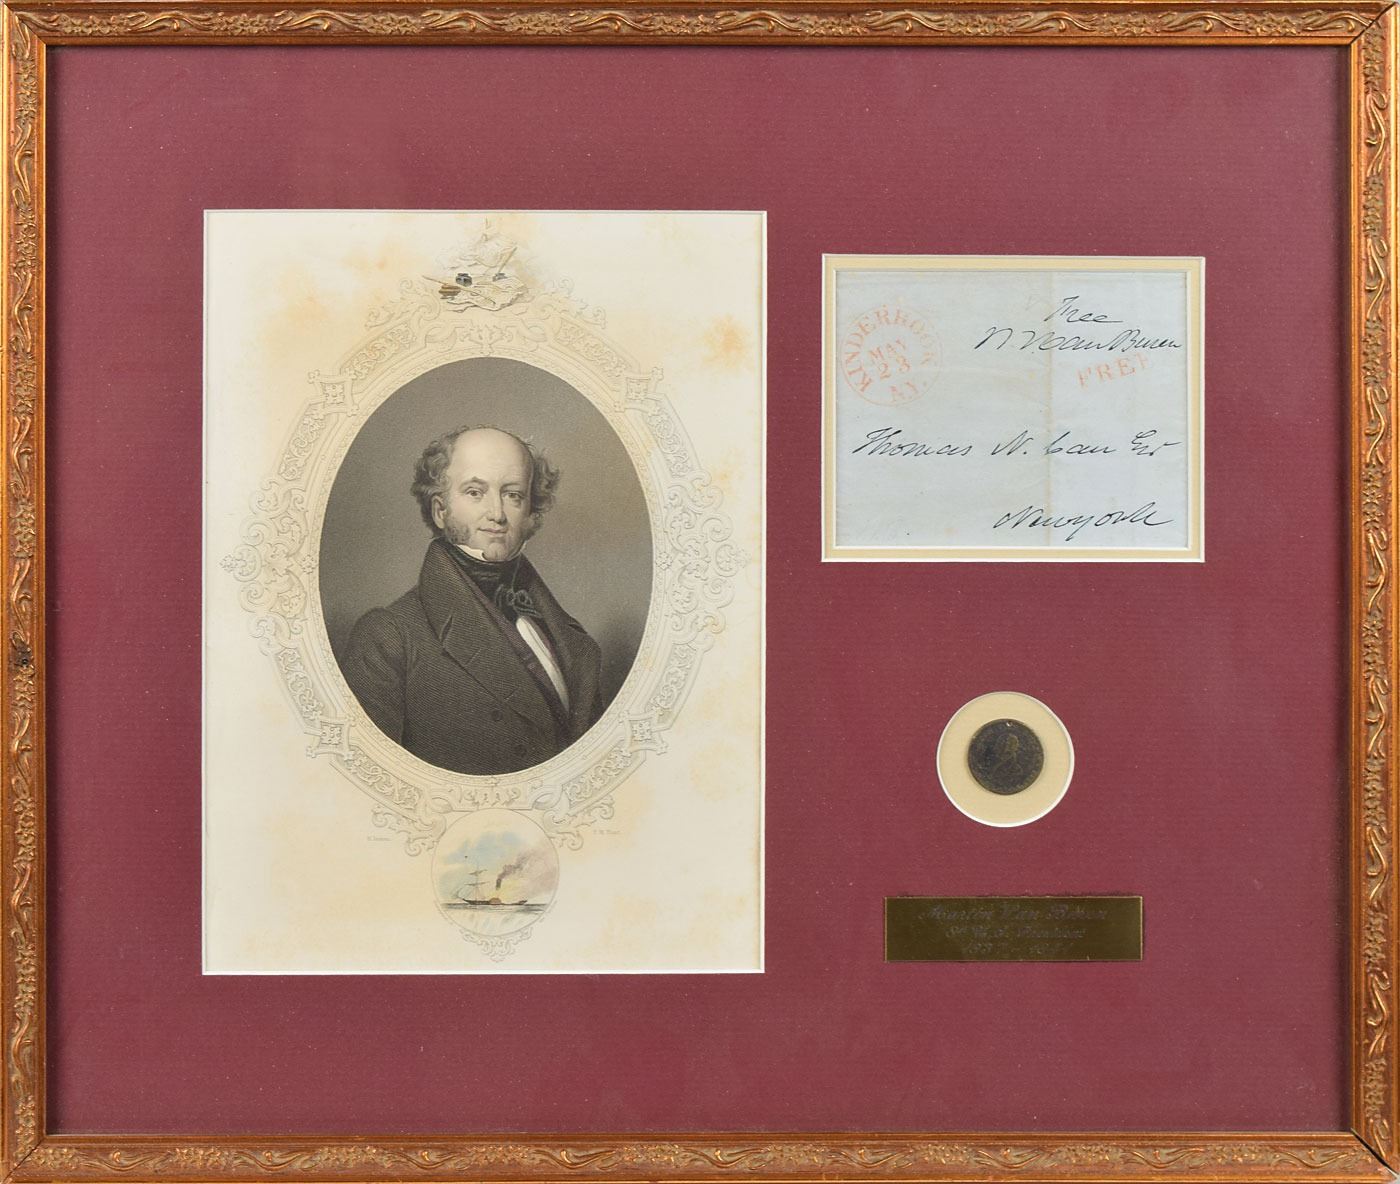 KINDERHOOK
MAY
23
N.Y.
Free
M. Van Buren
FREE
Thomas N. Carr Esr
Newyork
Martin Van Buren
8th U.S. President
1837 - 1841